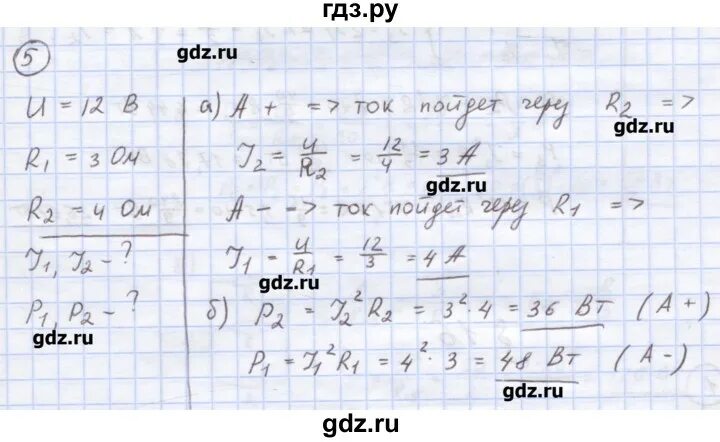 гдз.ру
5
gdz.ru
U = 12 В
R₁ = 3 Ом
R₂ = 4 Ом
J₁, J₂ - ?
P₁, P₂ - ?
gdz.ru
а) А + => ток пойдет через R₂ =>
gdz.ru
J₂ = U/R₂ = 12/4 = 3 А
gdz.ru
А - -> ток пойдет через R₁ =>
J₁ = U/R₁ = 12/3 = 4 А
gdz.ru
б) P₂ = J₂² R₂ = 3² · 4 = 36 Вт (А +)
P₁ = J₁² R₁ = 4² · 3 = 48 Вт (А -)
gdz.ru
gdz.ru